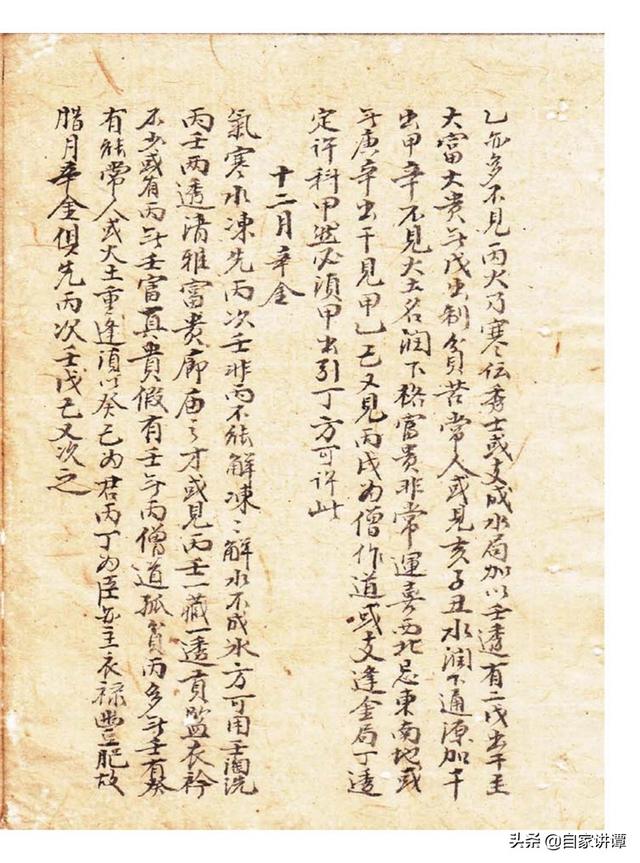 乙亦多不見丙火乃寒伝秀士或支成水局加以壬透有二戊出干主
大富大貴無戊出制貧苦常人或見亥子丑水潤下通源加干
出甲辛不見大土名潤下格富貴非常運喜西北忌東南地或
無庚辛出干見甲乙己又見丙戊為僧作道或支逢金局丁透
定许科甲然必須甲出引丁方可许此
十二月辛金
氣寒水凍先丙次壬非丙不能解凍〻解水不成冰方可用壬淘洗
丙壬兩透清雅富貴廊庙之才或見丙壬一藏一透貢监衣衿
不少或有丙無壬富真貴假有壬無丙僧道孤貧丙多無壬有癸
有能常人或火土重逢須以癸己为君丙丁为臣亦主衣禄豐肥故
腊月辛金俱先丙次壬戊己又次之
头条 @自家讲谭